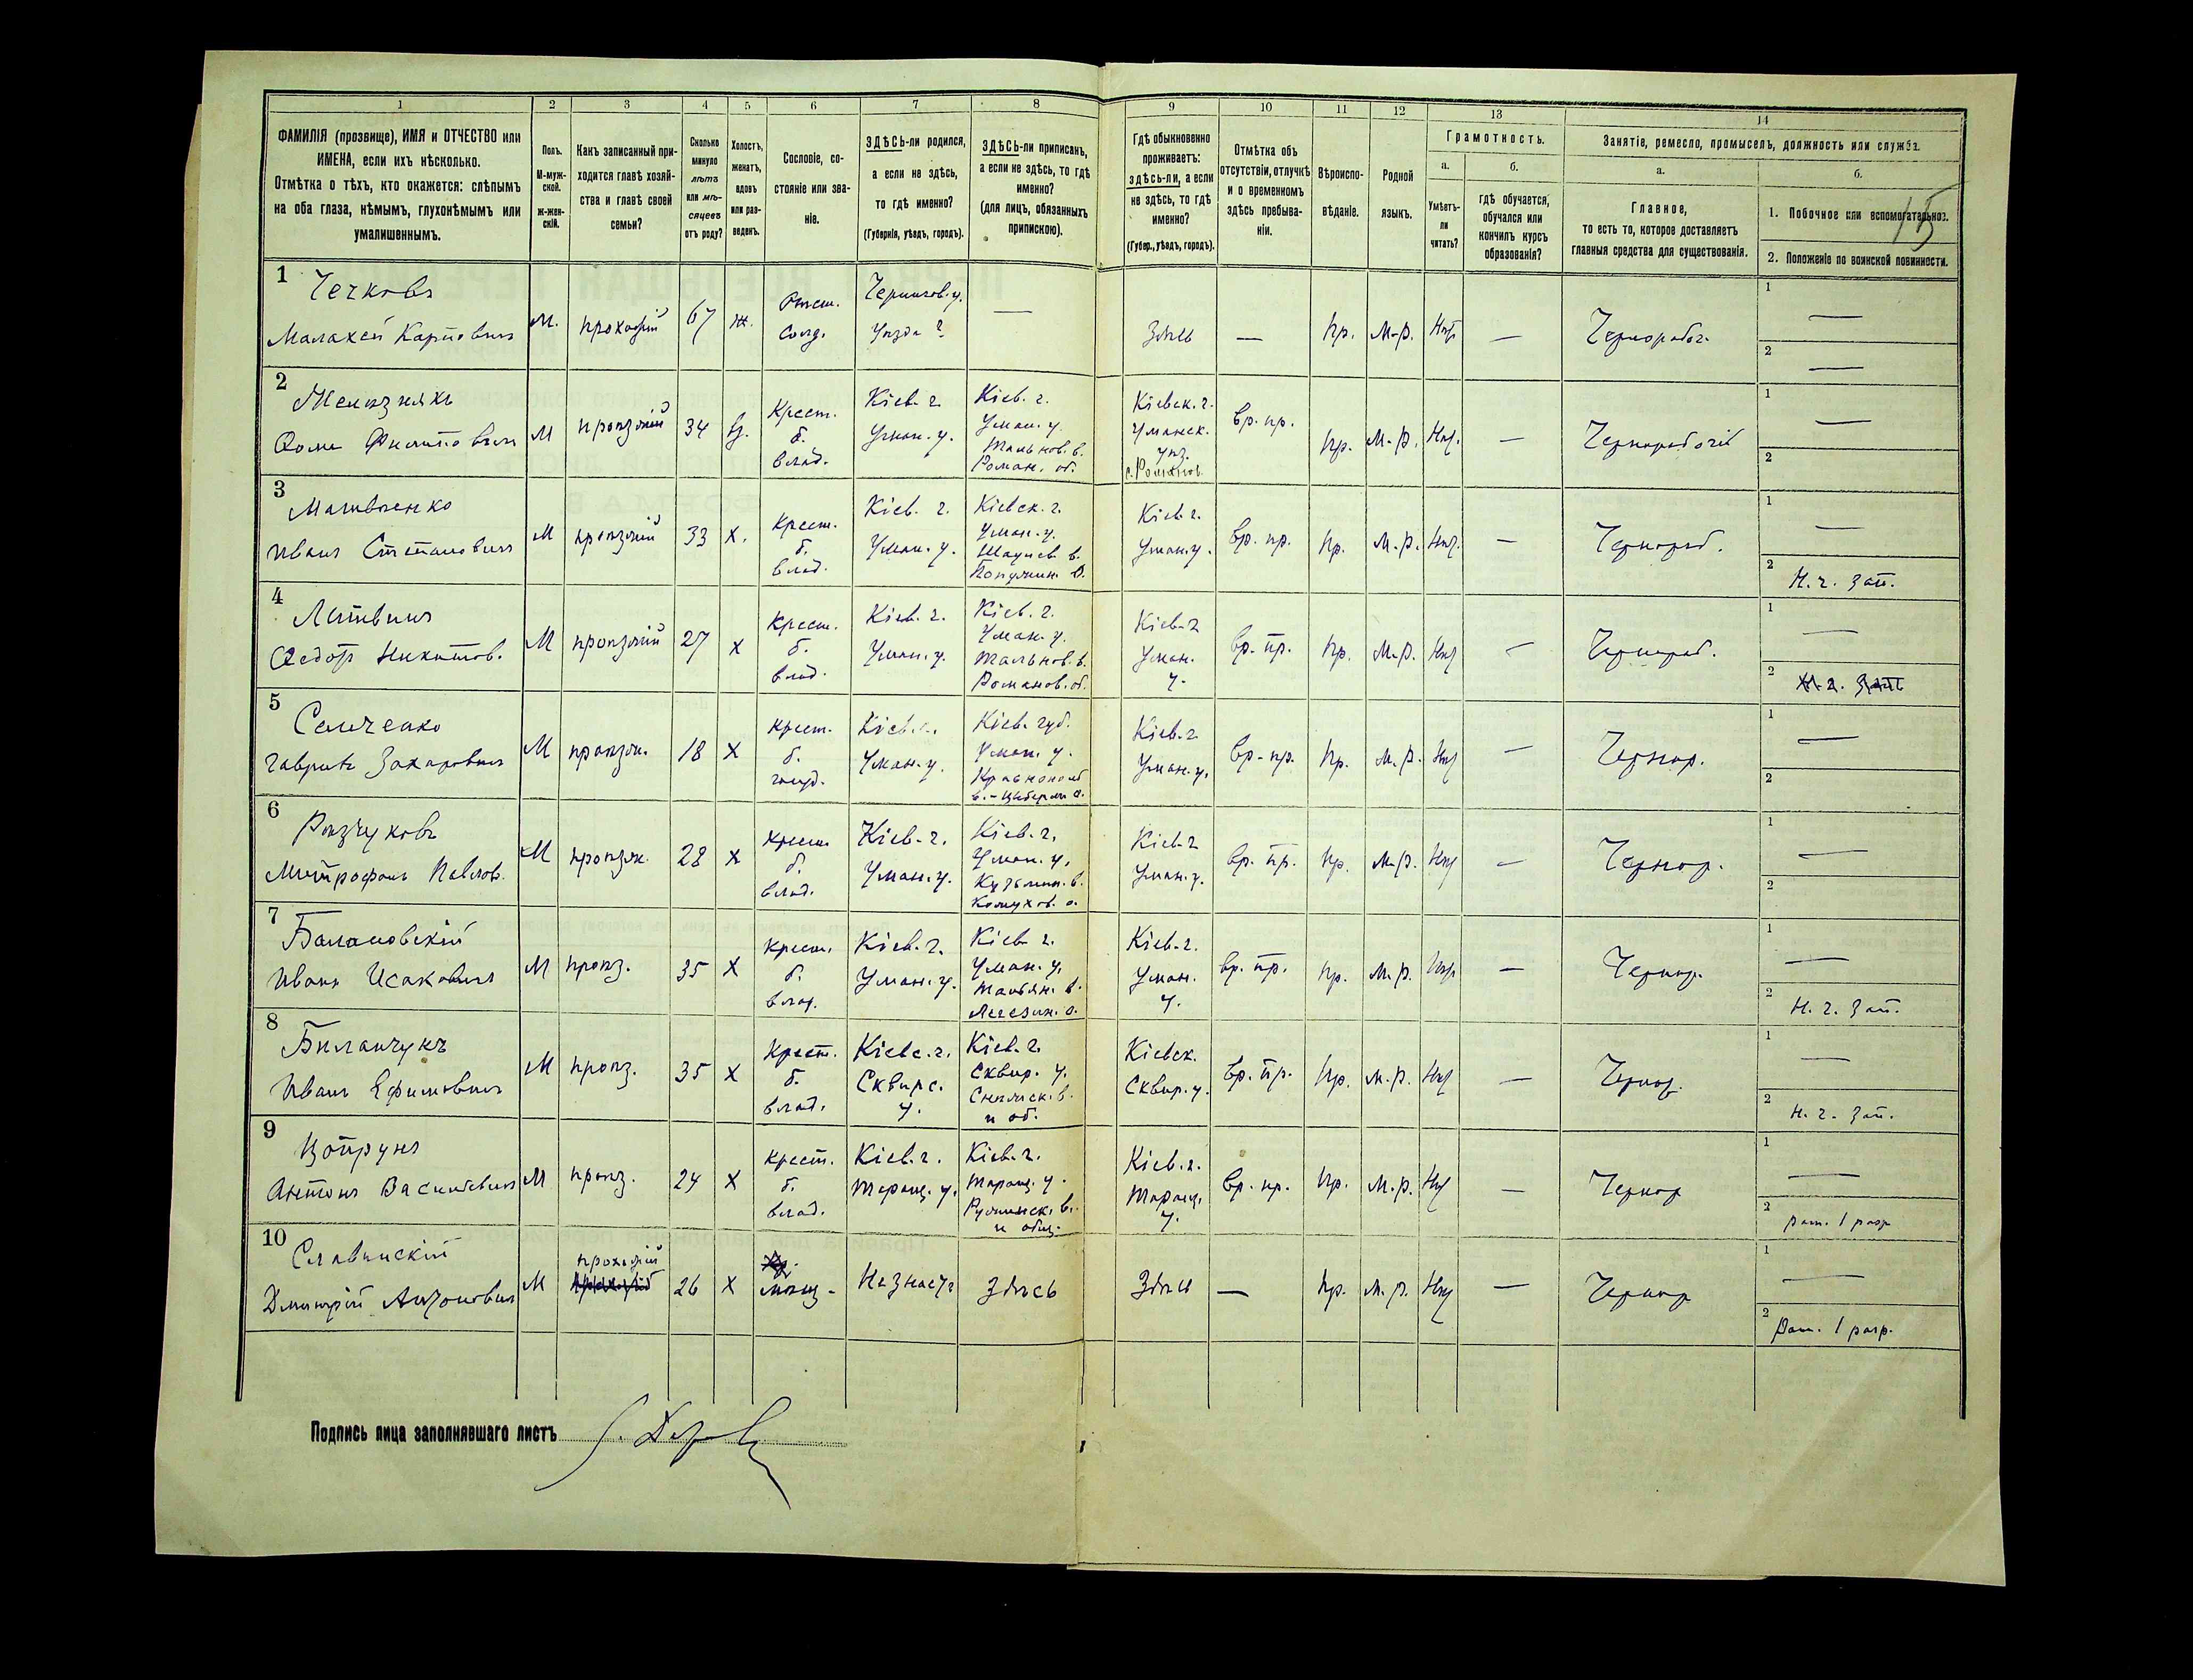 1 2 3 4 5 6 7 8 9 10 11 12 13 14
ФАМИЛІЯ (прозвище), ИМЯ и ОТЧЕСТВО или
ИМЕНА, если ихъ нѣсколько.
Отмѣтка о тѣхъ, кто окажется: слѣпымъ
на оба глаза, нѣмымъ, глухонѣмымъ или
умалишеннымъ.
Полъ.
М-муж-
ской.
ж-жен-
скій.
Какъ записанный при-
ходится главѣ хозяй-
ства и главѣ своей
семьи?
Сколько
минуло
лѣтъ
или мѣ-
сяцевъ
отъ роду?
Холостъ,
женатъ,
вдовъ
или раз-
веденъ.
Сословіе, со-
стояніе или зва-
ніе.
ЗДѢСЬ-ли родился,
а если не здѣсь,
то гдѣ именно?
(Губернія, уѣздъ, городъ).
ЗДѢСЬ-ли приписанъ,
а если не здѣсь, то гдѣ
именно?
(для лицъ, обязанныхъ
припискою).
Гдѣ обыкновенно
проживаетъ:
здѣсь-ли, а если
не здѣсь, то гдѣ
именно?
(Губер., уѣздъ, городъ).
Отмѣтка объ
отсутствіи, отлучкѣ
и о временномъ
здѣсь пребыва-
ніи.
Вѣроиспо-
вѣданіе.
Родной
языкъ.
Грамотность.
а.
Умѣетъ-
ли
читать?
б.
гдѣ обучается,
обучался или
кончилъ курсъ
образованія?
Занятіе, ремесло, промыселъ, должность или служба.
а.
Главное,
то есть то, которое доставляетъ
главныя средства для существованія.
б.
1. Побочное или вспомогательное.
2. Положеніе по воинской повинности.
15
1
Чечковъ
Малахей Карповичъ
М. прохожій 67 ж.
Отст.
Солд.
Чернигов. у.
—
Здѣсь — Пр. М-р. Нѣт — Чернорабоч.
1 —
2 —
2
Фома Филиповичъ
М проѣзжій 34 в.
Крест.
б.
влад.
Кіев. г.
Уман. у.
Кіев. г.
Уман. у.
Тальнов. в.
Роман. об.
Кіевск. г.
Уманск.
уѣз.
с. Роман
вр. пр. Пр. М-р. Нѣт. — Чернорабочій
1 —
2
3
Матвѣенко
Иванъ Степановичъ
М проѣзжій 33 х.
Крест.
б.
влад.
Кіев. г.
Уман. у.
Кіевск. г.
Уман. у.
Кіев. г.
Уман. у.
вр. пр. Пр. М. р. Нѣт. — Чернораб.
1 —
2 Н. ч. зап.
4
Литвинъ
Федотъ Никитов.
М проѣзжій 27 х
Крест.
б.
влад.
Кіев. г.
Уман. у.
Кіев. г.
Уман. у.
Тальнов. в.
Романов. об.
Кіев. г
Уман.
у.
вр. пр. Пр. М. р. Нѣт — Чернораб.
1 —
2 Н. ч. зап.
5
Сенченко
Гаврилъ Захаровичъ
М проѣзж. 18 х
Крест.
б.
госуд.
Кіев. г.
Уман. у.
Кіев. губ.
Уман. у.
Кіев. г.
Уман. у.
вр. пр. Пр. М. р. Нѣт — Чернор.
1 —
2
6
Митрофанъ Павлов.
М проѣзж. 28 х
Крест.
б.
влад.
Кіев. г.
Уман. у.
Кіев. г.
Уман. у.
Кузьмин. в.
Кожухов. о.
Кіев. г
Уман. у.
вр. пр. Пр. М. р. Нѣт — Чернор.
1 —
2
7
Балановскій
Иванъ Исаковичъ
М проѣз. 35 х
Крест.
б.
влад.
Кіев. г.
Уман. у.
Кіев г.
Уман. у.
Тальян. в.
Легезин. о.
Кіев. г.
Уман.
у.
вр. пр. Пр. М. р. Нѣт — Чернор.
1 —
2 Н. ч. зап.
8
Биланчукъ
Иванъ Ефимовичъ
М проѣз. 35 х
Крест.
б.
влад.
Кіевс. г.
Сквирс.
у.
Кіев. г.
Сквир. у.
и об.
Кіевск.
Сквир. у.
вр. пр. Пр. М. р. Нѣт — Чернор.
1 —
2 Н. ч. зап.
9
Цопрунъ
Антонъ Васильевичъ
М проѣз. 24 х
Крест.
б.
влад.
Кіев. г.
Таращ. у.
Кіев. г.
Таращ. у.
и общ.
Кіев. г.
Таращ.
у.
вр. пр. Пр. М. р. Нѣт — Чернор
1 —
2 рат. 1 разр
10
Славинскій
Дмитрій Антоновичъ
М прохожій 26 х
мѣщ.
Незнаетъ Здѣсь Здѣсь — Пр. М. р. Нѣт — Чернор
1 —
2 Рат. 1 разр.
Подпись лица заполнявшаго листъ